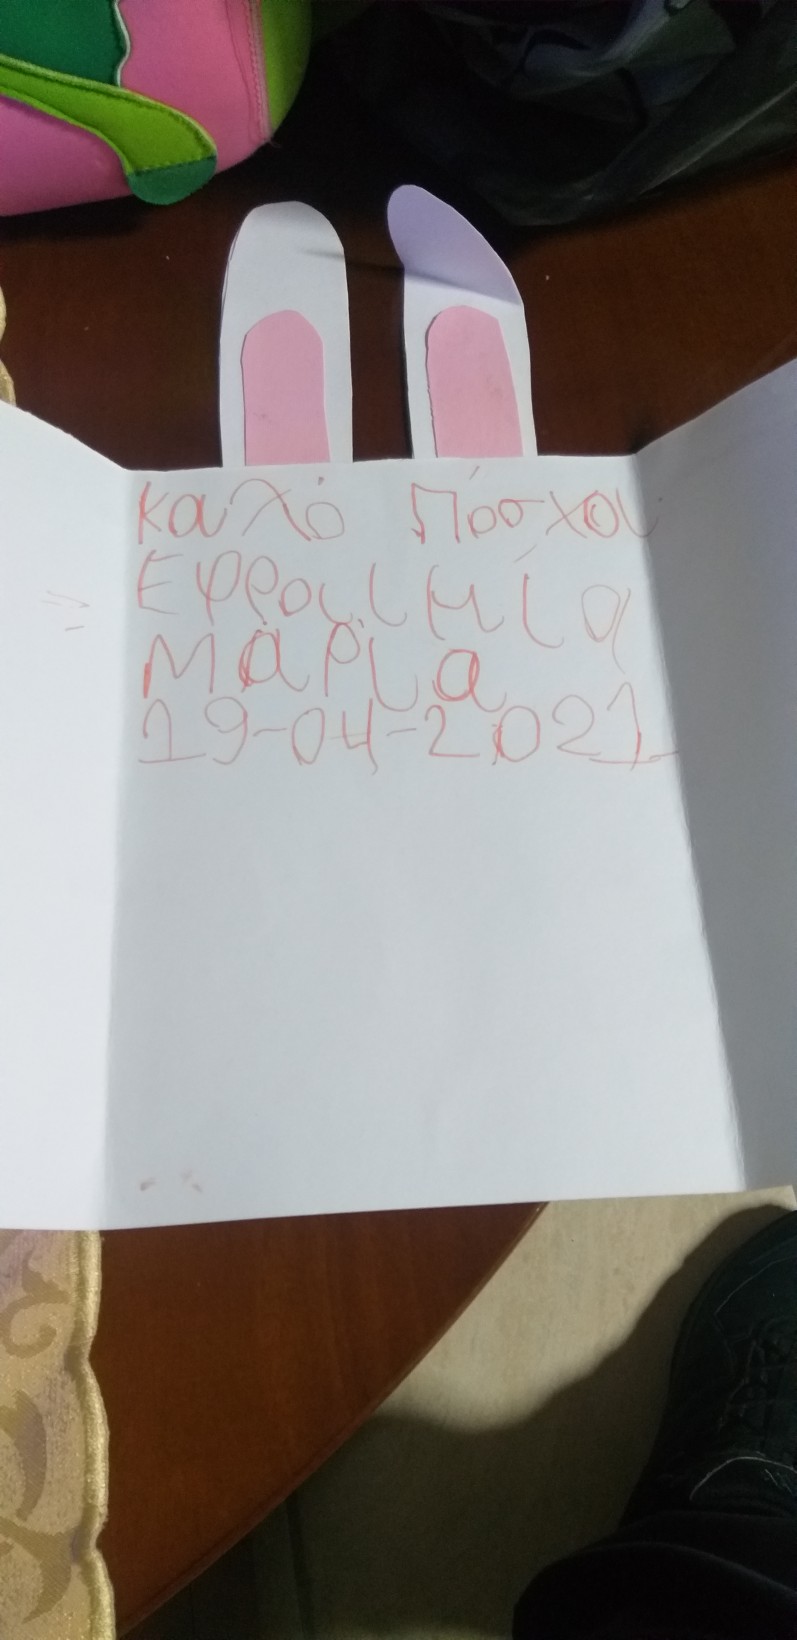 Καλό Πάσχα
Εφροσιμία
Μαρία
19-04-2021